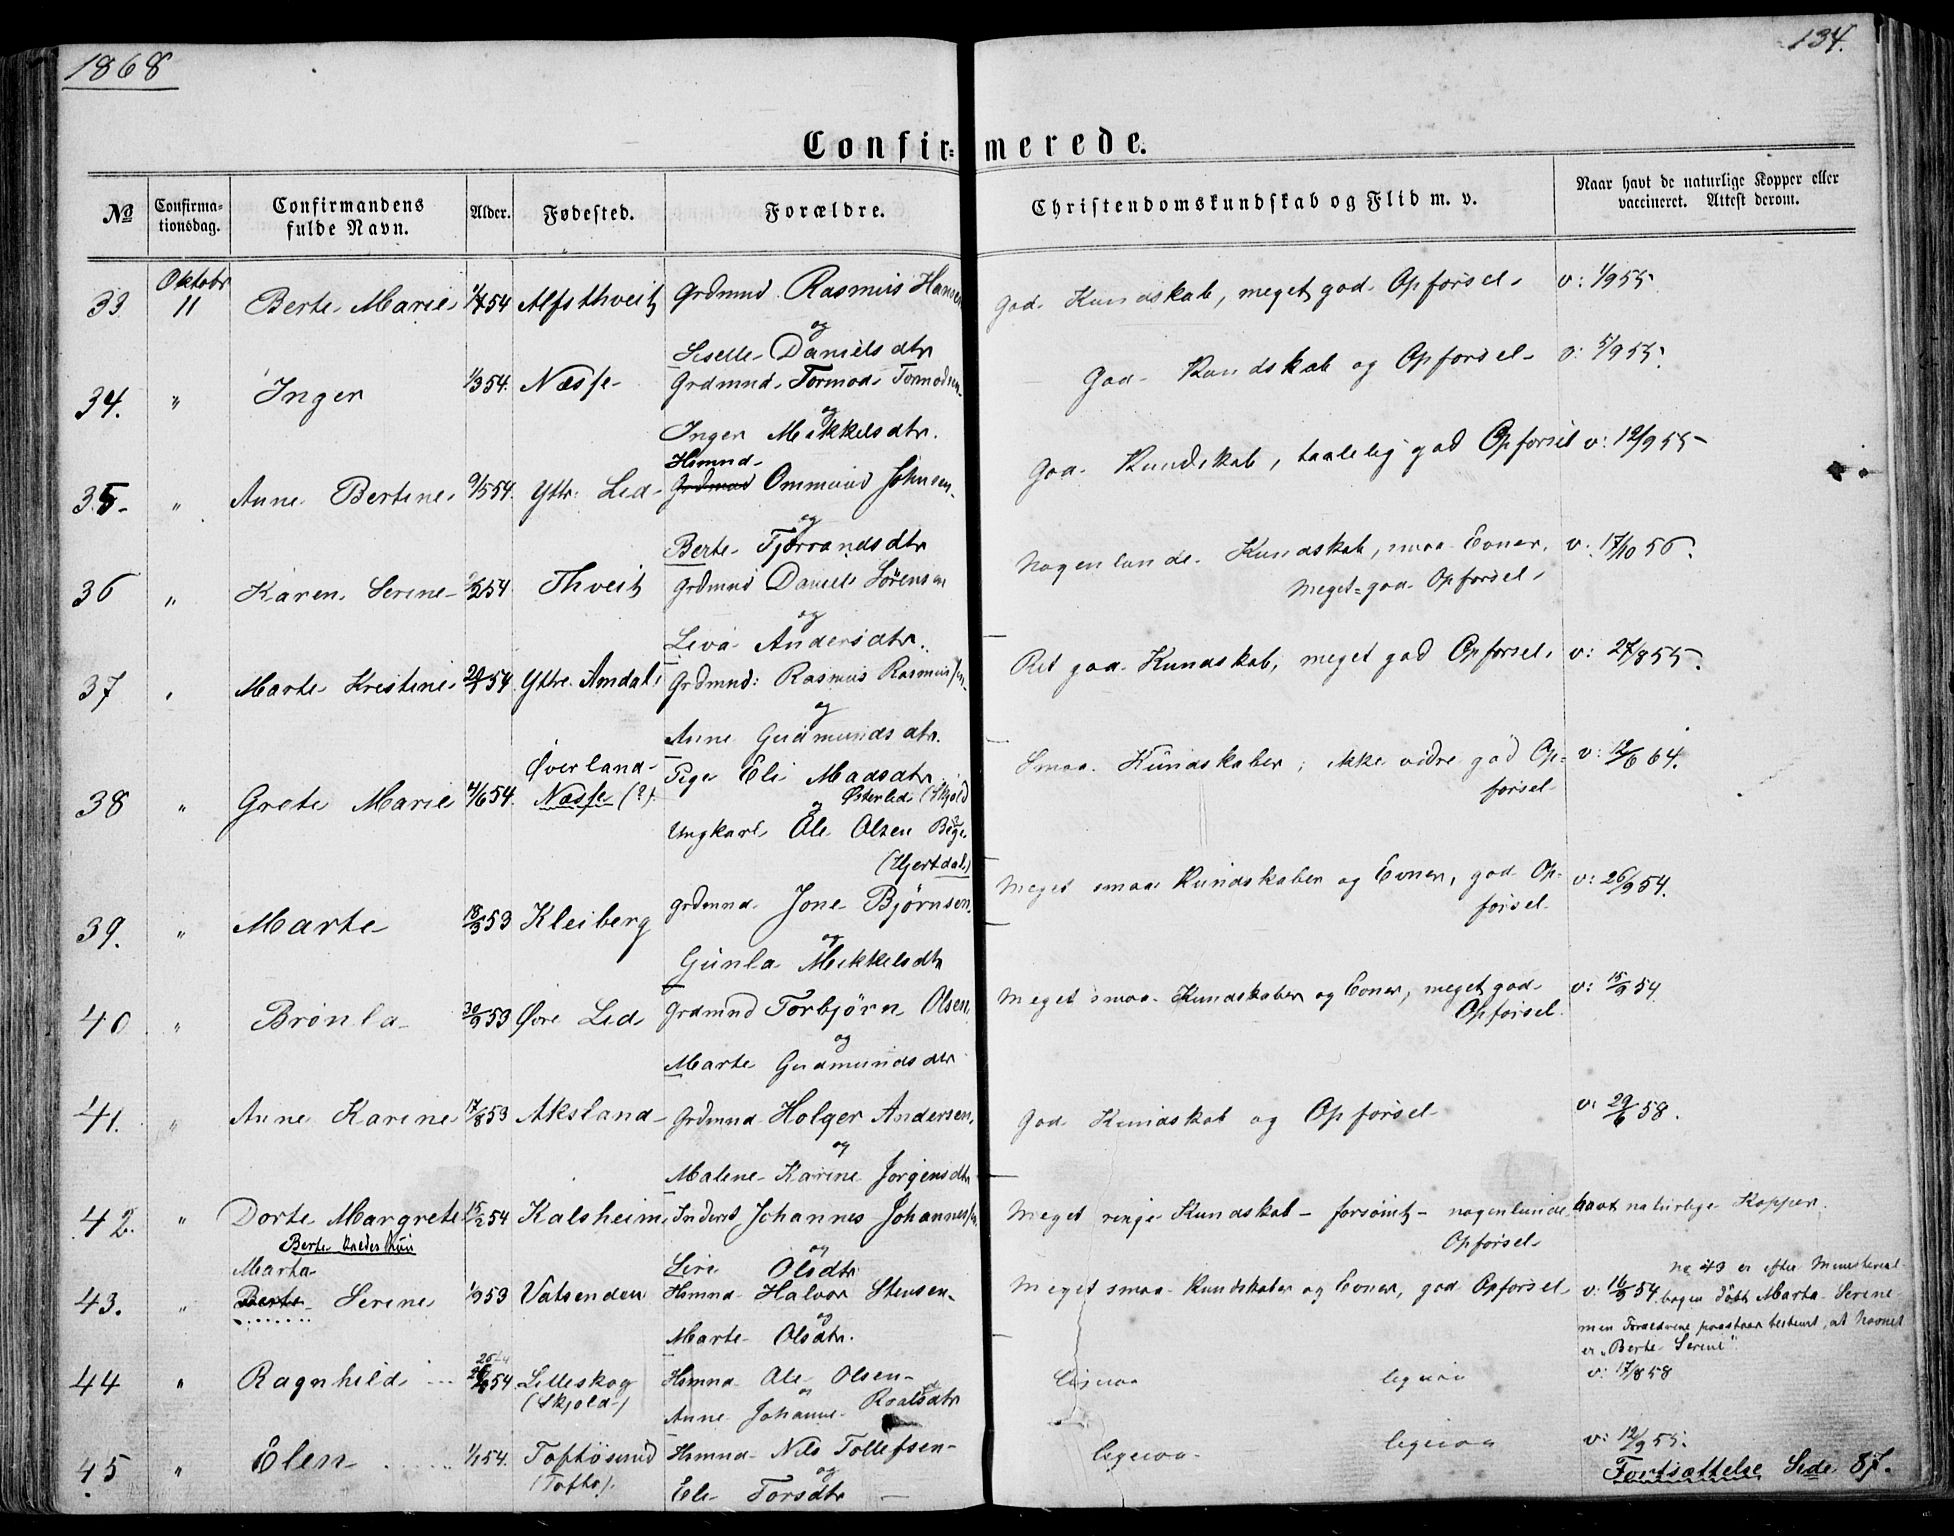 1868
134.
Confir= merede.
No
Confirma-
tionsdag.
Confirmandens
fulde Navn.
Alder.
Fødested.
Forældre.
Christendomskundskab og Flid m. v.
Naar havt de naturlige Kopper eller
vaccineret. Attest derom.
Oktobr
33. 11 Berte Marie 54 Alfsthveit Grdmnd Rasmus Hansen God Kundskab, meget god Opførsel. v: 1/9 55.
og
Siselle Danielsdtr
34. " Inger 1/3 54. Næsse Grdmnd. Tormod Tormodsen God Kundskab og Opførsel v: 5/9 55.
og
Inger Mikkelsdtr.
Hsmnd
35. " Anne Bertine 9/5 54. Yttr: Lid Grdmnd Ommund Johnsen God Kundskab, taalelig god Opførsel v: 12/9 55
og
Berte Tjerrandsdtr
36 " Karen Serine 54 Thveit Grdmnd Daniel Sörensen Nogenlunde Kundskab, smaa Evner, v: 17/10 56.
meget god Opførsel.
og
Liva Andersdtr.
37 " Marte Kristine 54 Yttre Amdal Grdmnd: Rasmus Rasmussen Ret god Kundskab, meget god Opførsel. v: 27/8 55.
og
Anne Gudmundsdtr.
38 " Grete Marie 4/6 54. Øverland
Næsse (?). Pige Eli Madsdtr. Smaa Kundskaber, ikke vidre god Op- v: 12/6 64.
førsel
Østerlid (Skjold
og
Ungkarl Ole Olsen
(Hjertdal)
39. " Marte 53 Kleiberg Grdmnd. Jone Bjørnsen. Meget smaa Kundskaber og Evner, god Op- v: 26/9 54.
førsel
og
Gunla Mikkelsdtr
40 " Brönla 30/9 53 Øvre Lid Grdmnd Torbjörn Olsen. Meget smaa Kundskaber og Evner, meget god v: 15/9 54.
Opførsel.
og
Marte Gudmundsdtr
41. " Anne Karine 17/8 53 Aksland Grdmnd Holger Andersen. God Kundskab og Opførsel v: 29/6 58.
og
Malene Karine Jorgensdtr
42. " Dorte Margrete 15/2 54 Kalsheim Inderst Johannes Johannessen Meget ringe Kundskab - forsømt - nogenlunde havt naturlige Kopper.
Opførsel
Berte kaldes hun
og
Siri Olsdtr
Marta
43. " Berte Serine 1/3 53 Vatsenden Hsmnd Halvor Stensen Meget smaa Kundskaber og Evner, god Opførsel v: 54.
No 43 er efter Ministerial-
bogen döbt Marta Serine
men Forældrene paastaar bestemt, at Navnet
er "Berte Serine".
og
Marte Olsdtr.
44 " Ragnhild 54 Lilleskog Hsmnd Ole Olsen ligesaa ligesaa v: 17/8 58
(Skjold)
og
Anne Johanne Roalsdtr
45 " Elen 1/1 54. Toftösund Hsmnd Nils Tollefsen ligesaa ligesaa v: 12/9 55.
(Toftö).
og
Eli Torsdtr
Fortsættelse Side 87.